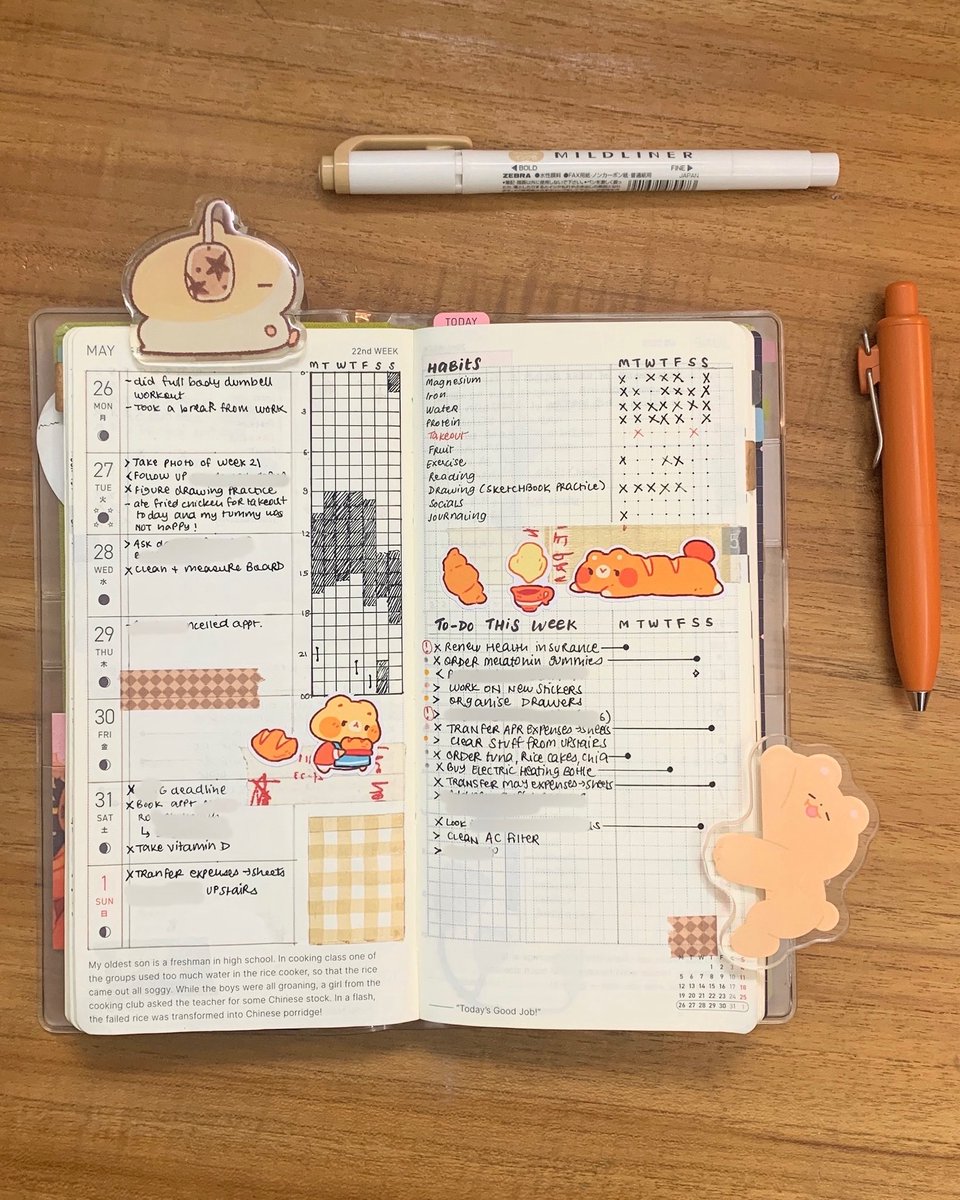 MILDLINER
◀BOLD
FINE▶
ZEBRA ●水性顔料 ●FAX用紙・ノンカーボン紙・普通紙用
JAPAN
TODAY
MAY
22nd WEEK
M T W T F S S
26
MON
月
- did full body dumbell
workout
- Took a break from work
27
TUE
火
> Take photo of week 21
< Follow up
x Figure drawing practice
- ate fried chicken for takeout
today and my tummy was
NOT happy!
28
WED
水
> Ask
x clean + measure Board
29
THU
木
ncelled appt.
30
FRI
金
31
SAT
土
x G deadline
x Book appt
↳
x Take vitamin D
1
SUN
日
x Tranfer expenses → sheets
upstairs
0
3
6
9
12
15
18
21
00
My oldest son is a freshman in high school. In cooking class one of
the groups used too much water in the rice cooker, so that the rice
came out all soggy. While the boys were all groaning, a girl from the
cooking club asked the teacher for some Chinese stock. In a flash,
the failed rice was transformed into Chinese porridge!
Habits M T W T F S S
Magnesium x · x x x · x
Iron x x · x x x x
Water x x x x x x x
Protein x x x x x · x
Takeout · x · · · x ·
Fruit
Exercise x · · x x · ·
Reading
Drawing (sketchbook practice) x x x x x · ·
Socials
Journaling x
5
To-Do This Week M T W T F S S
! x Renew Health insurance
x Order melatonin gummies
<
> Work on new stickers
> Organise drawers
! >
x Tranfer Apr expenses → sheets
> Clear stuff from upstairs
x Order tuna, Rice cakes, chia
x Buy electric heating bottle
x Transfer May expenses → sheets
>
x Look
> Clean AC filter
>
1 2 3 4
5 6 7 8 9 10 11
12 13 14 15 16 17 18
19 20 21 22 23 24 25
26 27 28 29 30 31 1
"Today's Good Job!"